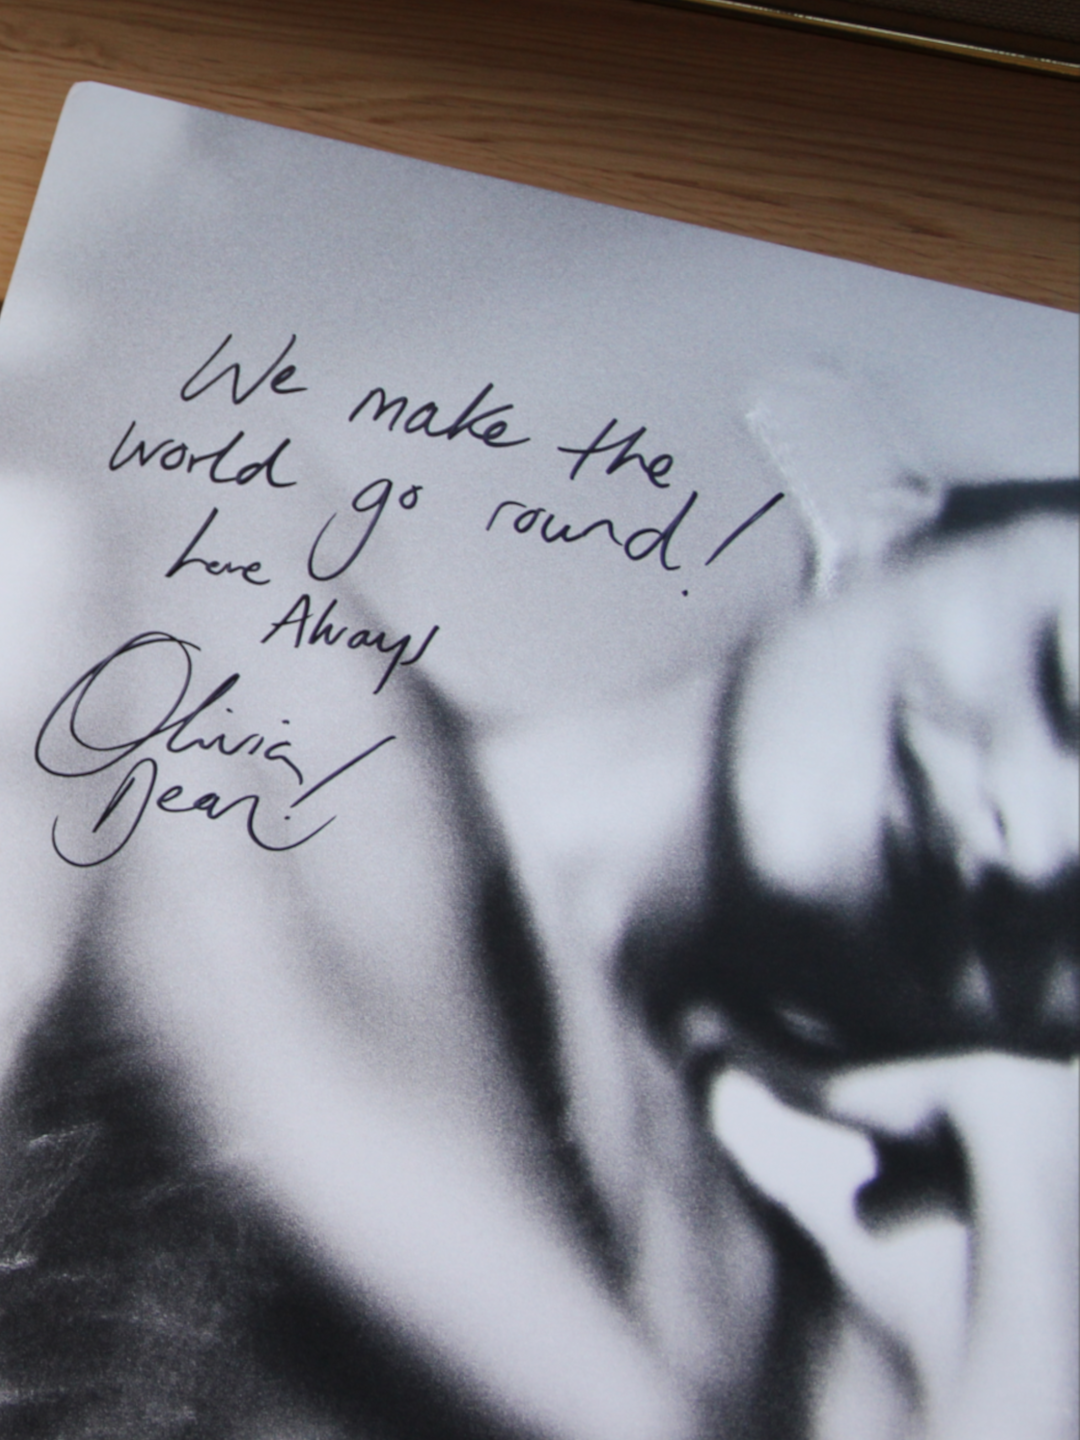 We make the
world go round!
Love
Always
Olivia
Dean!